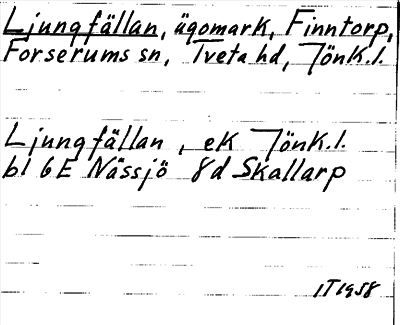 Ljungfällan, ägomark, Finntorp,
Forserums sn, Tveta hd, Jönk.l.
Ljungfällan, ek Jönk.l.
bl 6E Nässjö 8d Skallarp
IT1958